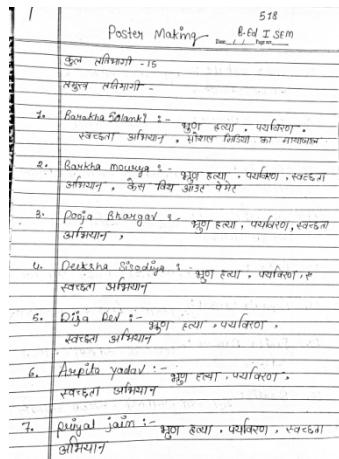 518
Poster Making B.Ed I SEM
Date / / Page no
कुल प्रतिभागी - 15
प्रतिभागी -
1. Barakha Solanki :- भ्रूण हत्या, पर्यावरण,
स्वच्छता अभियान, सोशल मिडिया का मायाजाल
2. Barkha mourya :- भ्रूण हत्या, पर्यावरण, स्वच्छता
अभियान, केस
3. Pooja Bhargav :- भ्रूण हत्या, पर्यावरण, स्वच्छता
अभियान,
4. Deeksha Sisodiya :- भ्रूण हत्या, पर्यावरण,
स्वच्छता अभियान
5. Diya Dev :- भ्रूण हत्या, पर्यावरण,
स्वच्छता अभियान
6. Arpita yadav :- भ्रूण हत्या, पर्यावरण,
स्वच्छता अभियान
7. priyal jain :- भ्रूण हत्या, पर्यावरण, स्वच्छता
अभियान